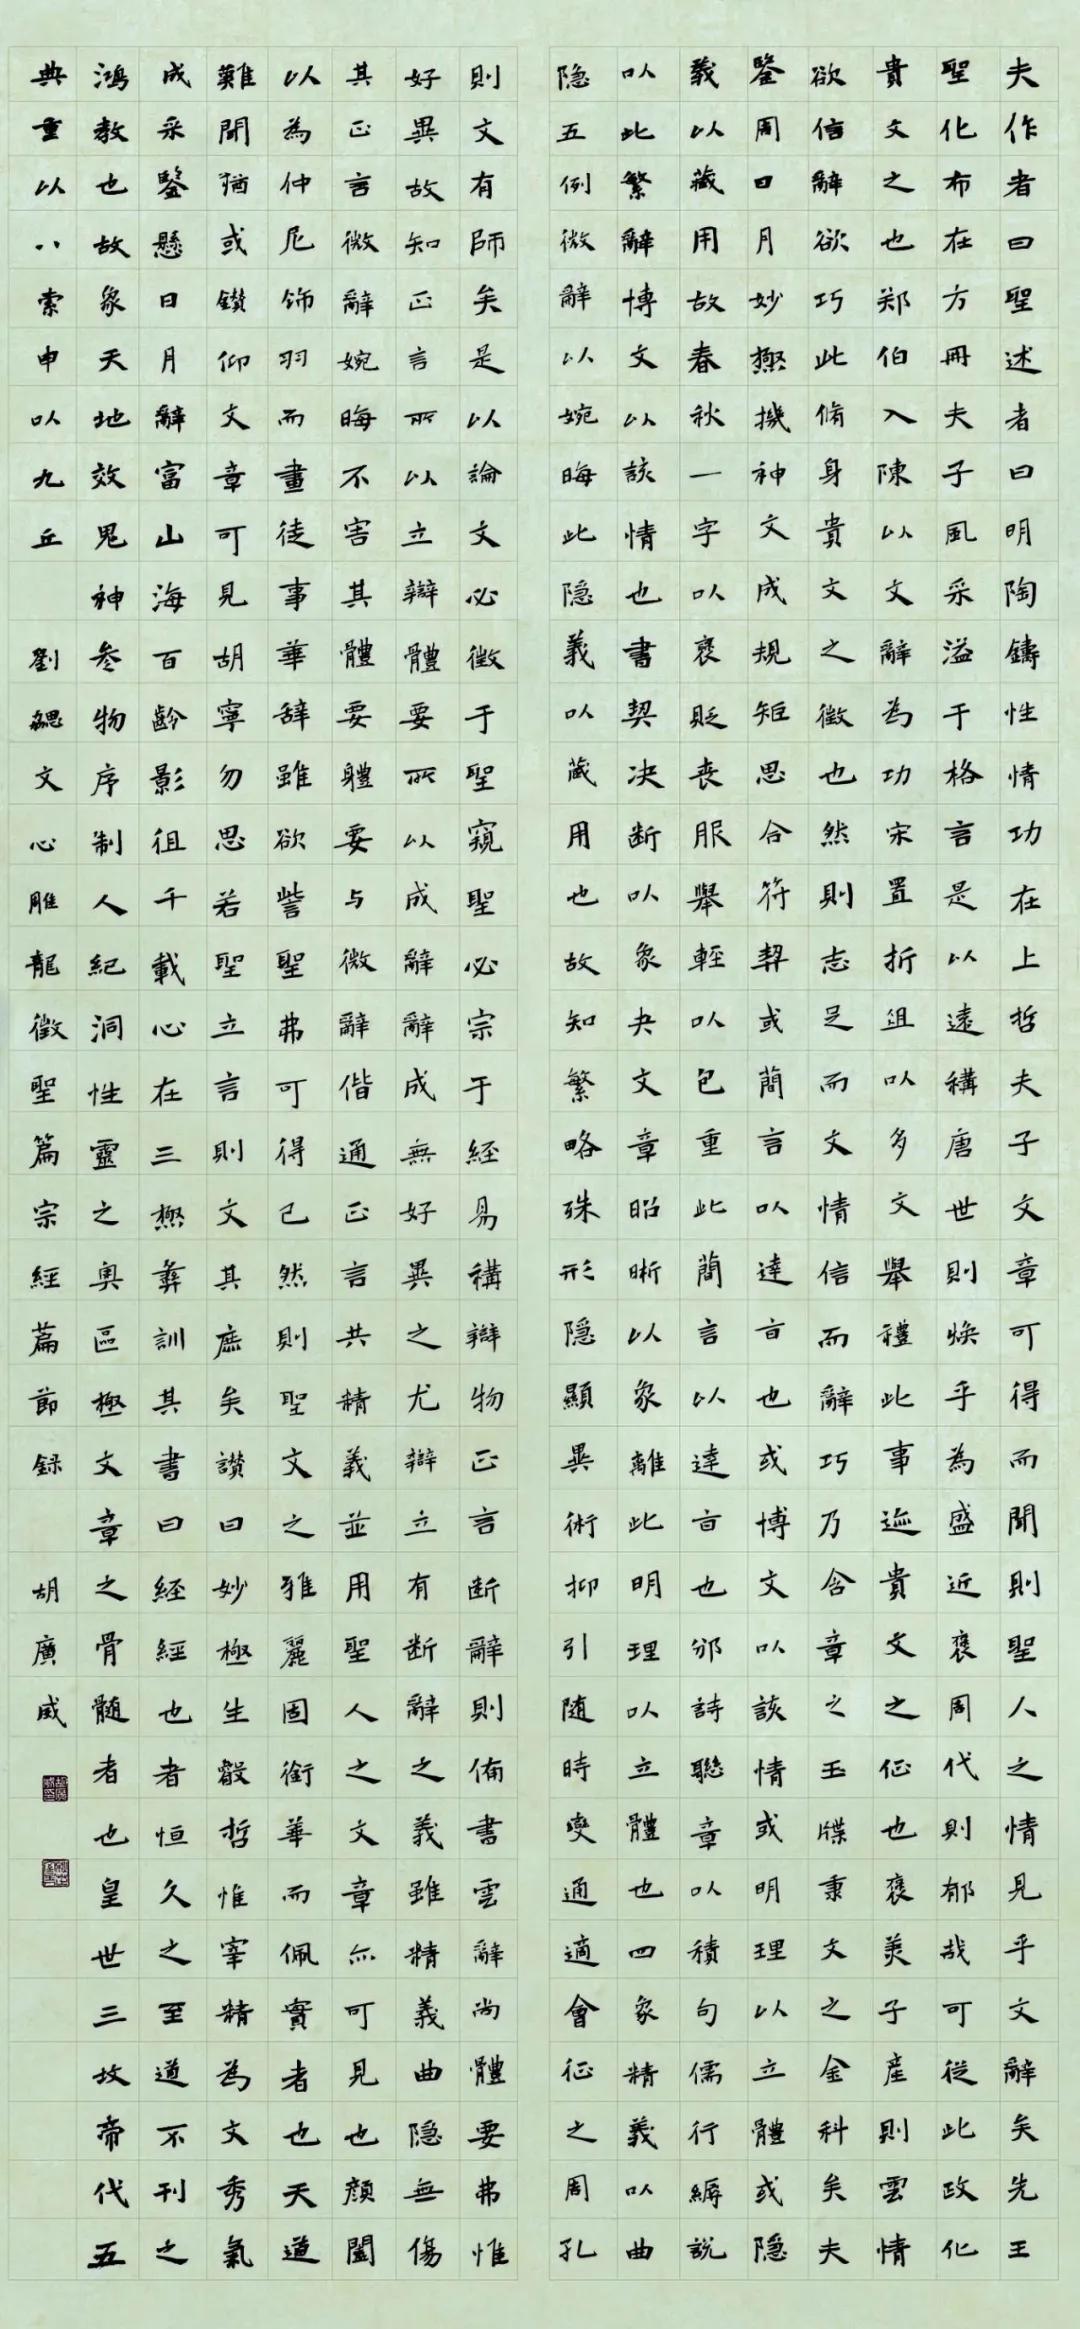 夫作者曰聖述者曰明陶鑄性情功在上哲夫子文章可得而聞則聖人之情見乎文辭矣先王
聖化布在方冊夫子風采溢于格言是以遠稱唐世則煥乎為盛近褒周代則郁哉可從此政化
貴文之也郑伯入陳以文辭為功宋置折俎以多文舉禮此事迹貴文之征也褒美子產則雲情
欲信辭欲巧此脩身貴文之徵也然則志足而文情信而辭巧乃含章之玉牒秉文之金科矣夫
鑒周日月妙極機神文成規矩思合符契或簡言以達旨也或博文以該情或明理以立體或隐
義以藏用故春秋一字以褒貶喪服舉輕以包重此簡言以達旨也邠詩聯章以積句儒行縟說
以此繁辭博文以該情也書契决断以象夬文章昭晰以象離此明理以立體也四象精義以曲
隐五例微辭以婉晦此隐義以藏用也故知繁略殊形隐顯異術抑引随時變通適會征之周孔
則文有師矣是以論文必徵于聖窺聖必宗于經易稱辯物正言断辭則俻書雲辭尚體要弗惟
好異故知正言所以立辯體要所以成辭辭成無好異之尤辯立有断辭之義雖精義曲隐無傷
其正言微辭婉晦不害其體要體要与微辭偕通正言共精義並用聖人之文章亦可見也顏闔
以為仲尼饰羽而畫徒事華辞雖欲訾聖弗可得已然則聖文之雅麗固銜華而佩實者也天道
難聞猶或鑽仰文章可見胡寧勿思若聖立言則文其庶矣讚曰妙極生叡哲惟宰精為文秀氣
成采鑒懸日月辭富山海百齡影徂千載心在三極彝訓其書曰經經也者恒久之至道不刊之
鴻教也故象天地效鬼神參物序制人紀洞性靈之奧區極文章之骨髓者也皇世三坟帝代五
典重以八索申以九丘 劉勰文心雕龍徵聖篇宗經篇節録 胡廣威